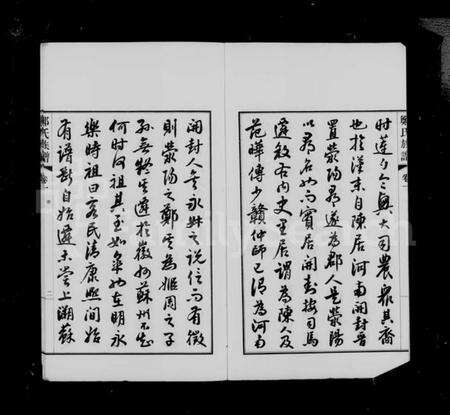 鄭氏族譜 卷一
時蓮勺令興大司農眾其裔
也於漢末自陳居河南開封晉
置滎陽郡遂為郡人是滎陽
以為名而實居開封按司馬
遷敘各內史里居謂為陳人及
范曄傳少贛仲師已謂為河南
開封人矣永叔之說信而有徵
則滎陽之鄭之為姬周之子
孫無疑其遷於徽州蘇州不知
何時何祖其至如皋也在明永
樂時祖曰客民清康熙間始
有譜斷自始遷未嘗上溯蘇
鄭氏族譜 卷一
二